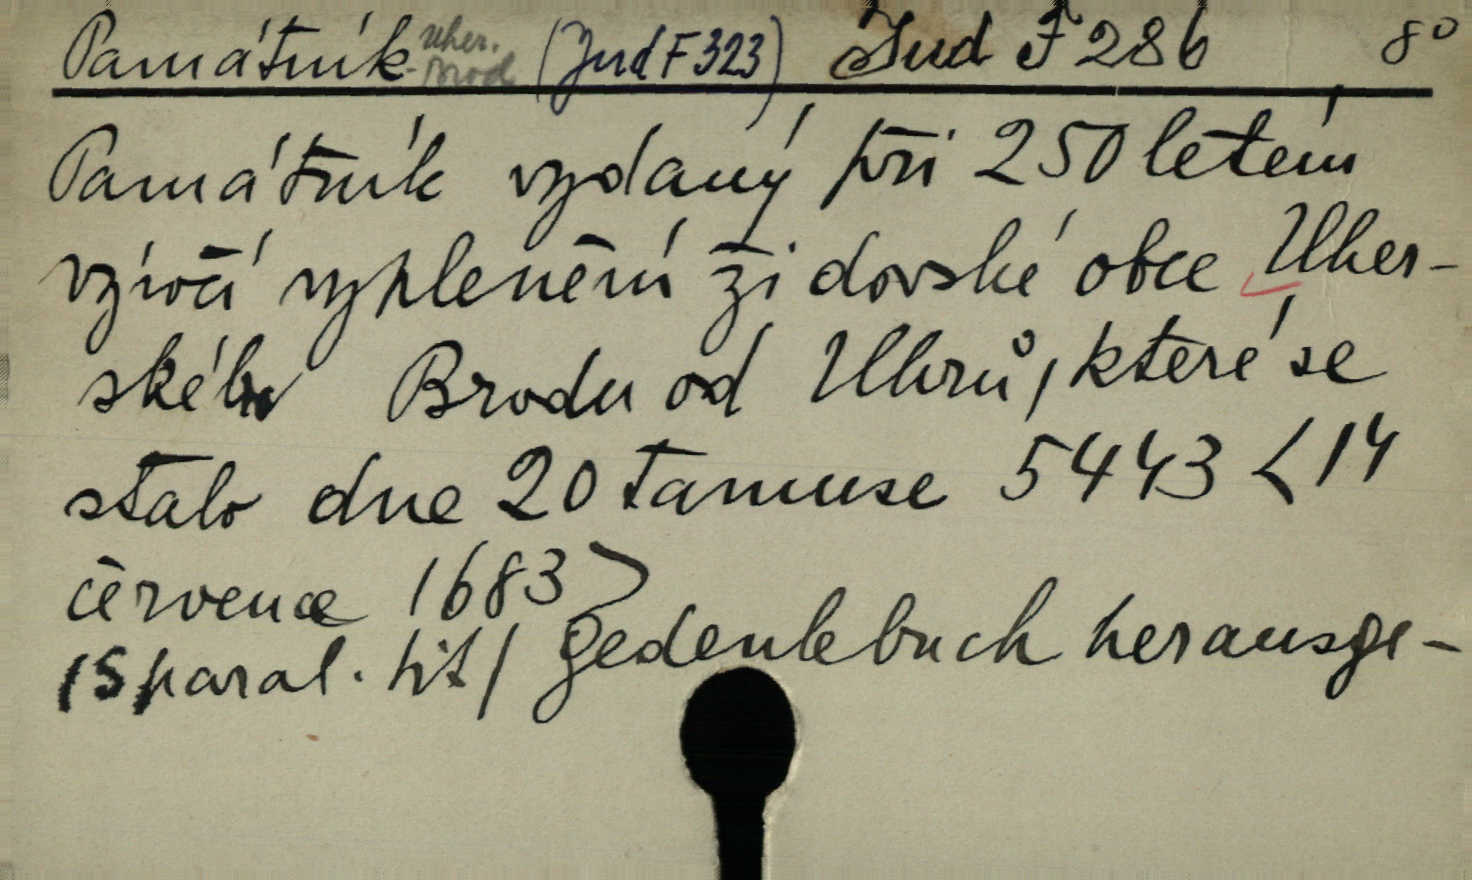 Památník uher. brod (Jud F 323) Jud F 286 8°
Památník vzdaný při 250 letém
výročí vyplenění židovské obce Uher-
ského Brodu od Uhrů, které se
stalo dne 20 tamuse 5443 <14
července 1683>
/S paral. tit/ Gedenkbuch herausge-